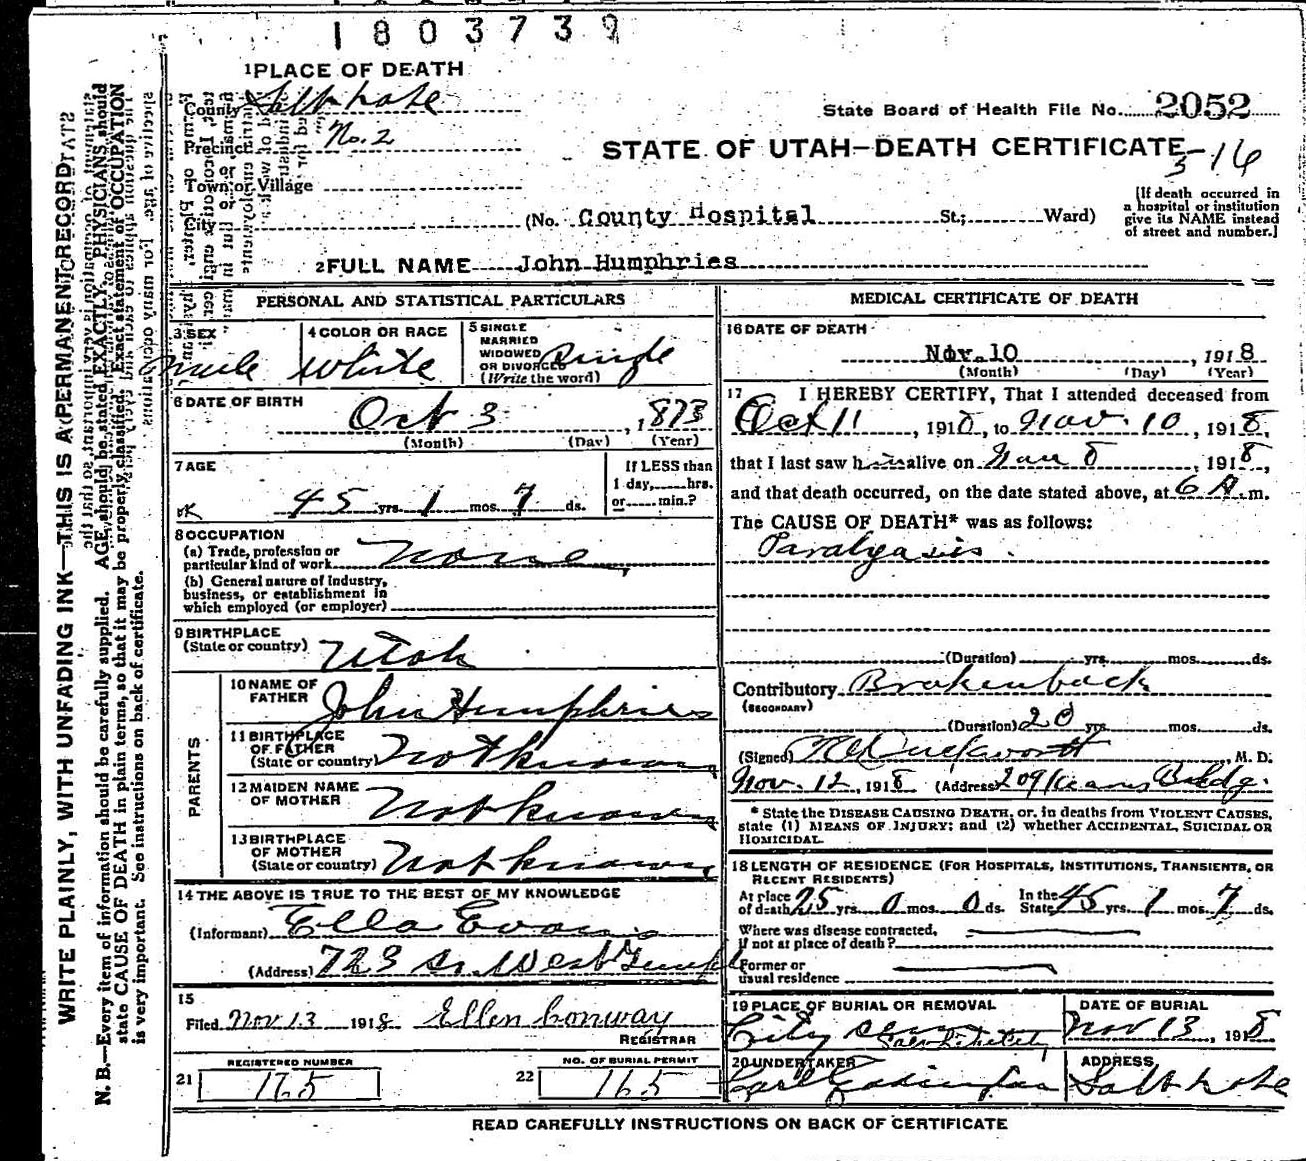 1803739
1 PLACE OF DEATH
County Salt Lake
State Board of Health File No. 2052
Precinct No. 2
STATE OF UTAH—DEATH CERTIFICATE
516
Town or Village
[If death occurred in
a hospital or institution
give its NAME instead
of street and number.]
City (No. County Hospital St.; Ward)
2 FULL NAME John Humphries
PERSONAL AND STATISTICAL PARTICULARS
3 SEX
male
4 COLOR OR RACE
White
5 SINGLE
MARRIED
WIDOWED
OR DIVORCED
(Write the word)
Single
6 DATE OF BIRTH
Oct 3, 1873
(Month) (Day) (Year)
7 AGE
45 yrs. 1 mos. 7 ds.
If LESS than
1 day, hrs.
or min.?
OK
8 OCCUPATION
(a) Trade, profession or
particular kind of work None
(b) General nature of industry,
business, or establishment in
which employed (or employer)
9 BIRTHPLACE
(State or country) Utah
PARENTS
10 NAME OF
FATHER John Humphries
11 BIRTHPLACE
OF FATHER
(State or country) Not known
12 MAIDEN NAME
OF MOTHER Not known
13 BIRTHPLACE
OF MOTHER
(State or country) Not known
14 THE ABOVE IS TRUE TO THE BEST OF MY KNOWLEDGE
(Informant) Ella Evans
(Address) 723 So. West Temple
15
Filed Nov 13 1918 Ellen Conway
REGISTRAR
REGISTERED NUMBER
21 165
NO. OF BURIAL PERMIT
22 165
MEDICAL CERTIFICATE OF DEATH
16 DATE OF DEATH
Nov. 10, 1918
(Month) (Day) (Year)
17 I HEREBY CERTIFY, That I attended deceased from
Oct 11, 1918, to Nov. 10, 1918,
that I last saw him alive on Nov 8, 1918,
and that death occurred, on the date stated above, at 6 A. m.
The CAUSE OF DEATH* was as follows:
Paralyasis.
(Duration) yrs. mos. ds.
Contributory Broken back
(SECONDARY)
(Duration) 20 yrs. mos. ds.
(Signed) Duckworth, M. D.
Nov. 12, 1918 (Address) 209 Kearns Bldg.
* State the DISEASE CAUSING DEATH, or, in deaths from VIOLENT CAUSES,
state (1) MEANS OF INJURY; and (2) whether ACCIDENTAL, SUICIDAL OR
HOMICIDAL.
18 LENGTH OF RESIDENCE (FOR HOSPITALS, INSTITUTIONS, TRANSIENTS, OR
RECENT RESIDENTS)
At place
of death 25 yrs. 0 mos. 0 ds. In the
State 45 yrs. 1 mos. 7 ds.
Where was disease contracted,
if not at place of death?
Former or
usual residence
19 PLACE OF BURIAL OR REMOVAL
City Cem
DATE OF BURIAL
Nov 13, 1918
20 UNDERTAKER
ADDRESS
Salt Lake
READ CAREFULLY INSTRUCTIONS ON BACK OF CERTIFICATE
WRITE PLAINLY, WITH UNFADING INK—THIS IS A PERMANENT RECORD
N. B.—Every item of information should be carefully supplied. AGE should be stated EXACTLY. PHYSICIANS should
state CAUSE OF DEATH in plain terms, so that it may be properly classified. Exact statement of OCCUPATION
is very important. See instructions on back of certificate.